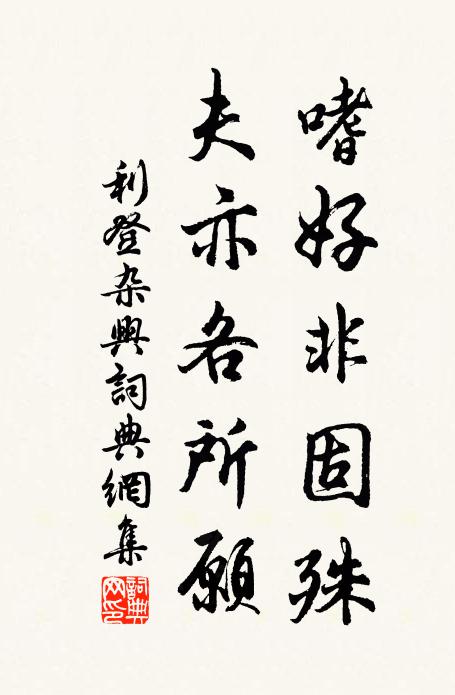 嗜好非固殊
夫亦各所願
利登杂興詞典網集
詞典网印